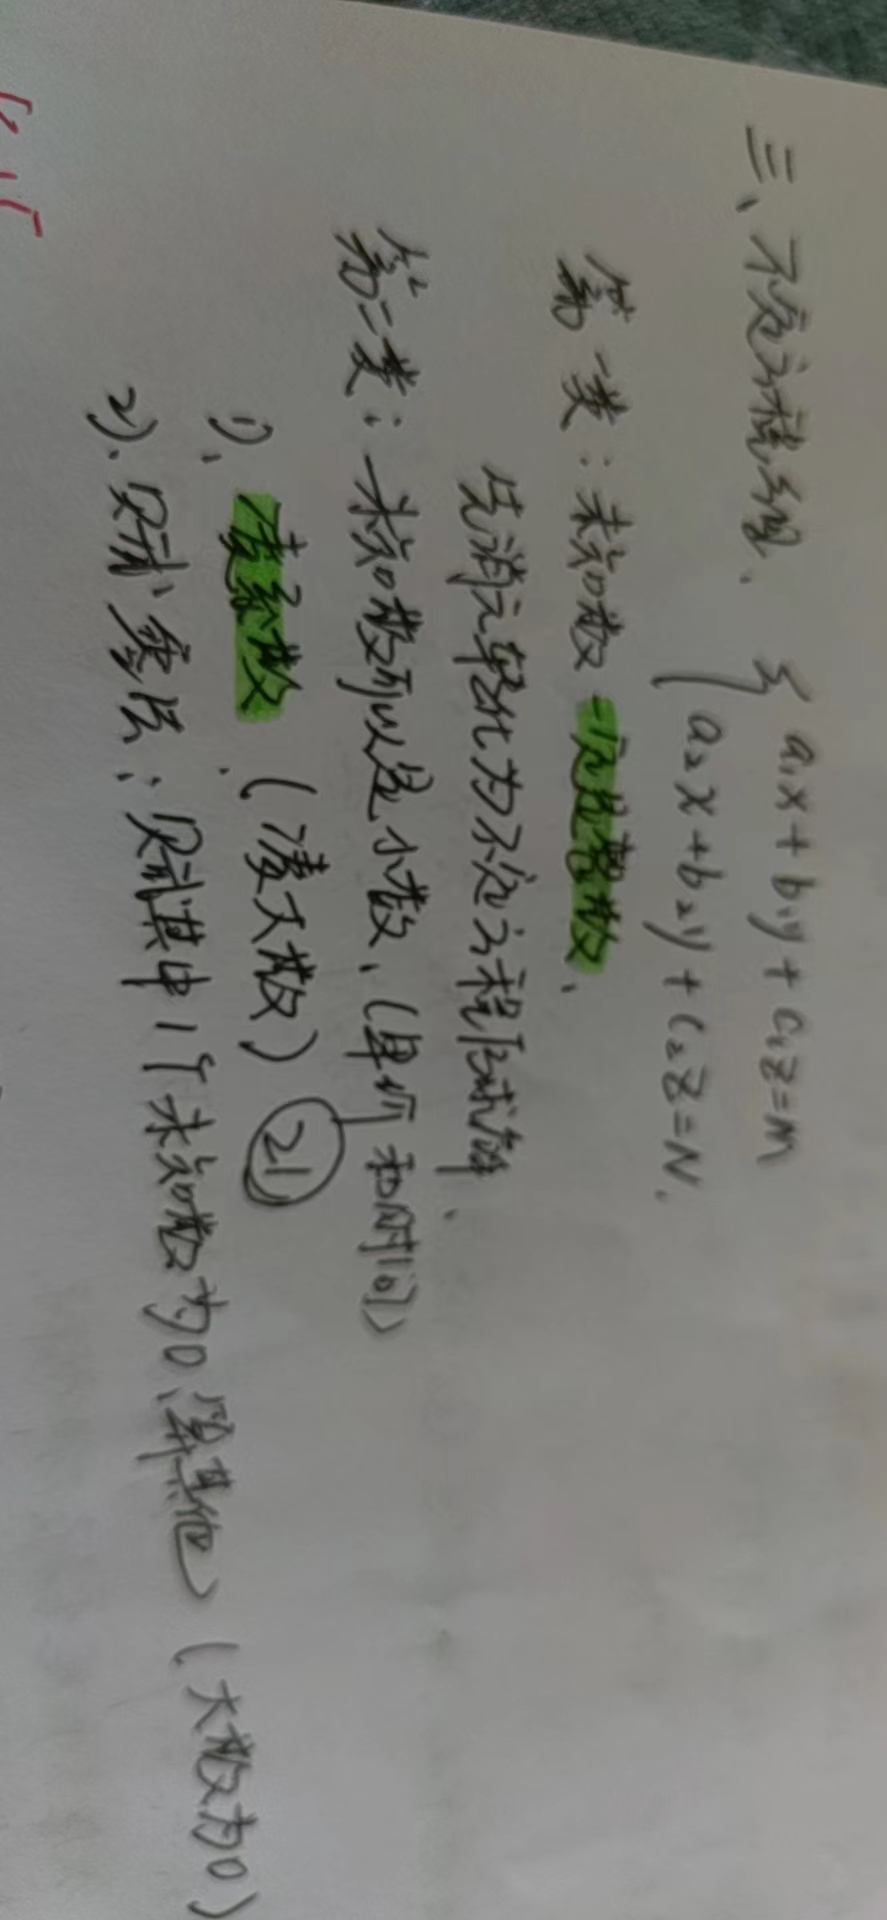 三、不定方程组、 { a₁x + b₁y + c₁z = M
a₂x + b₂y + c₂z = N.
第一类：未知数一定是整数、
先消元转化为不定方程后求解、
第二类：未知数可以是小数、(单价和时间)
1)、凑系数、(凑大数) ㉑
2)、赋零法：赋其中1个未知数为0、算其他 (大数为0)